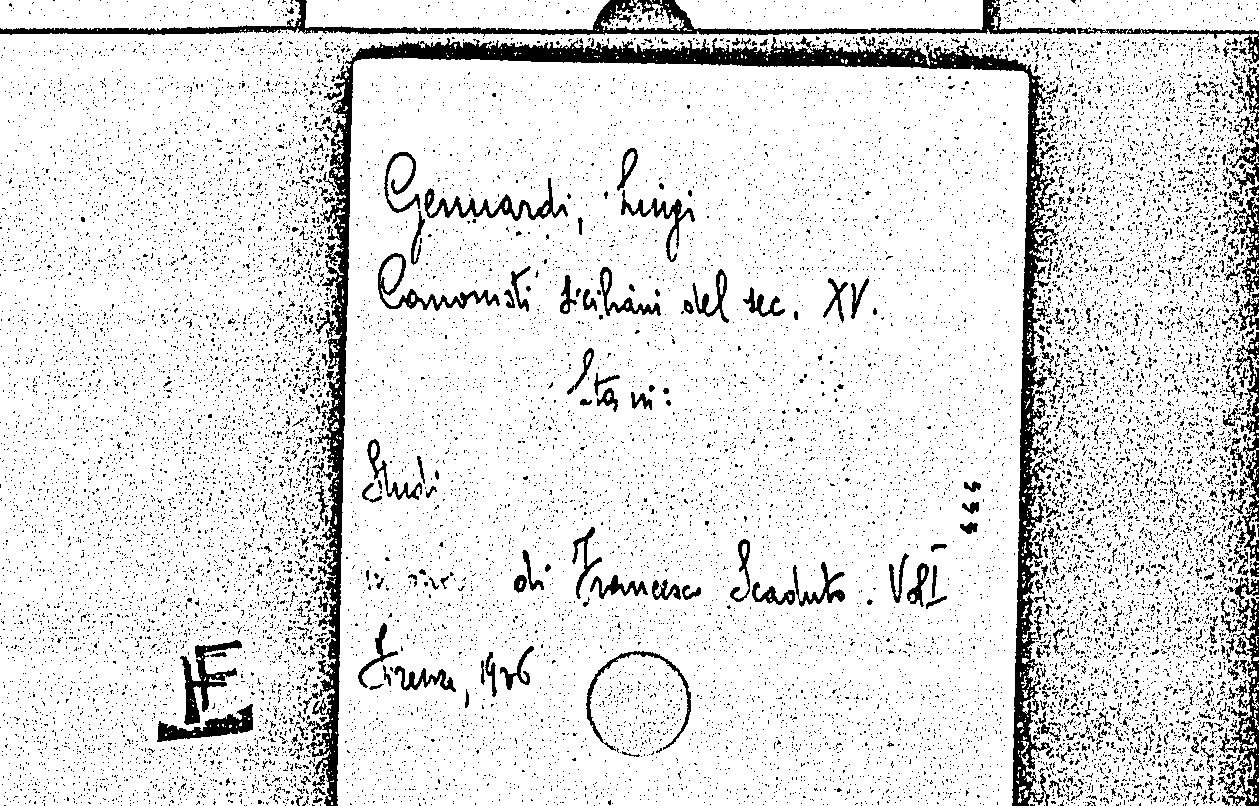 Genuardi, Luigi
Canonisti siciliani del sec. XV.
Sta in:
Studi
di Francesco Scaduto. Vol I
Firenze, 1936